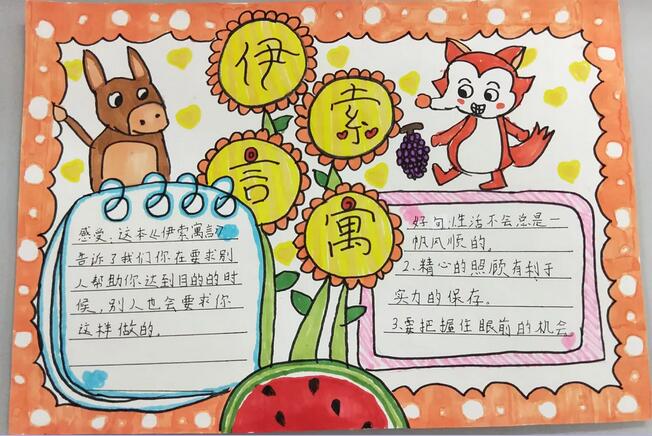 伊
索
言
寓
感受:这本《伊索寓言》
告诉了我们你在要求别
人帮助你达到目的的时
候,别人也会要求你
这样做的。
好句:性活不会总是一
帆风顺的。
2、精心的照顾有利于
实力的保存。
3、要把握住眼前的机会